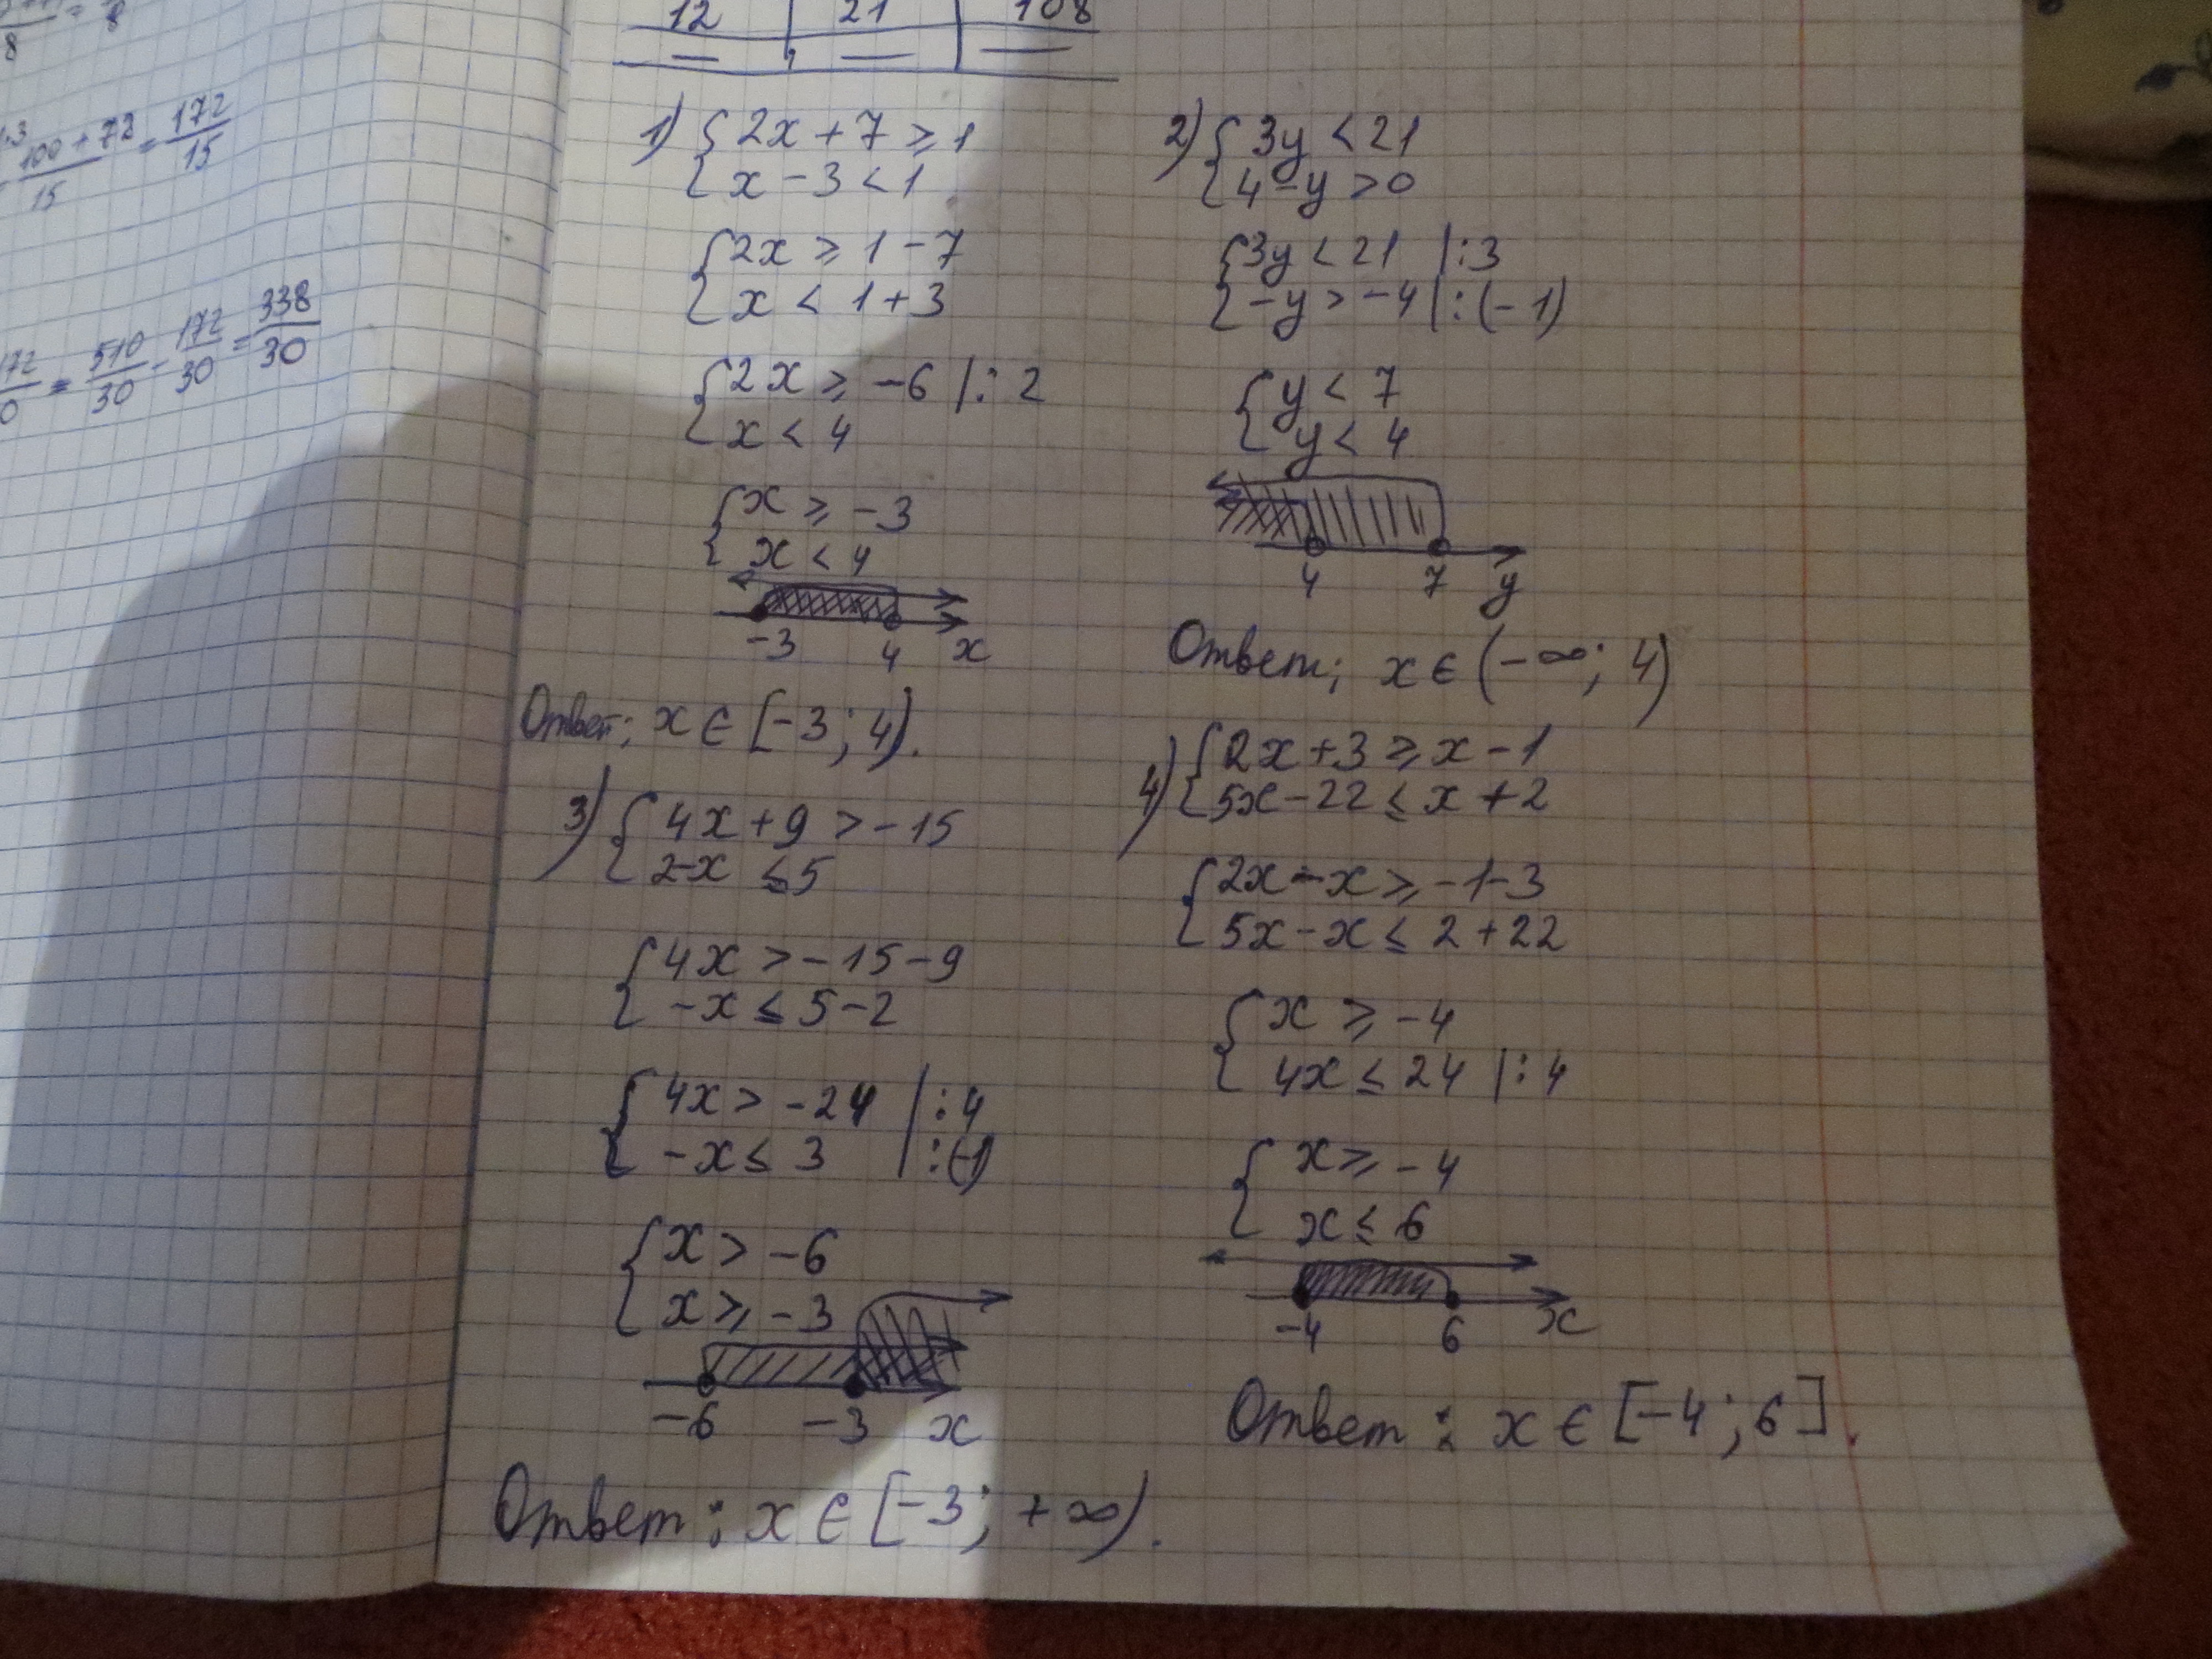 8 = 8
12 | 21 | 108
100 + 72 / 15 = 172 / 15
= 510/30 - 172/30 = 338/30
1) { 2x + 7 ⩾ 1
x - 3 < 1
{ 2x ⩾ 1 - 7
x < 1 + 3
{ 2x ⩾ -6 |: 2
x < 4
{ x ⩾ -3
x < 4
-3 4 x
Ответ; x ∈ [-3; 4).
2) { 3y < 21
4 - y > 0
{ 3y < 21 |:3
-y > -4 |:(-1)
{ y < 7
y < 4
4 7 y
Ответ; x ∈ (-∞; 4)
3) { 4x + 9 > -15
2-x ≤ 5
{ 4x > -15 - 9
-x ≤ 5 - 2
{ 4x > -24 |:4
-x ≤ 3 |:(-1)
{ x > -6
x ⩾ -3
-6 -3 x
Ответ: x ∈ [-3; +∞).
4) { 2x + 3 ⩾ x - 1
5x - 22 ≤ x + 2
{ 2x - x ⩾ -1-3
5x - x ≤ 2 + 22
{ x ⩾ -4
4x ≤ 24 |:4
{ x ⩾ -4
x ≤ 6
-4 6 x
Ответ: x ∈ [-4; 6].